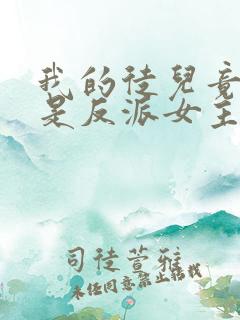 我的徒兒竟
是反派女主
司徒萱雅
未經同意禁止轉載